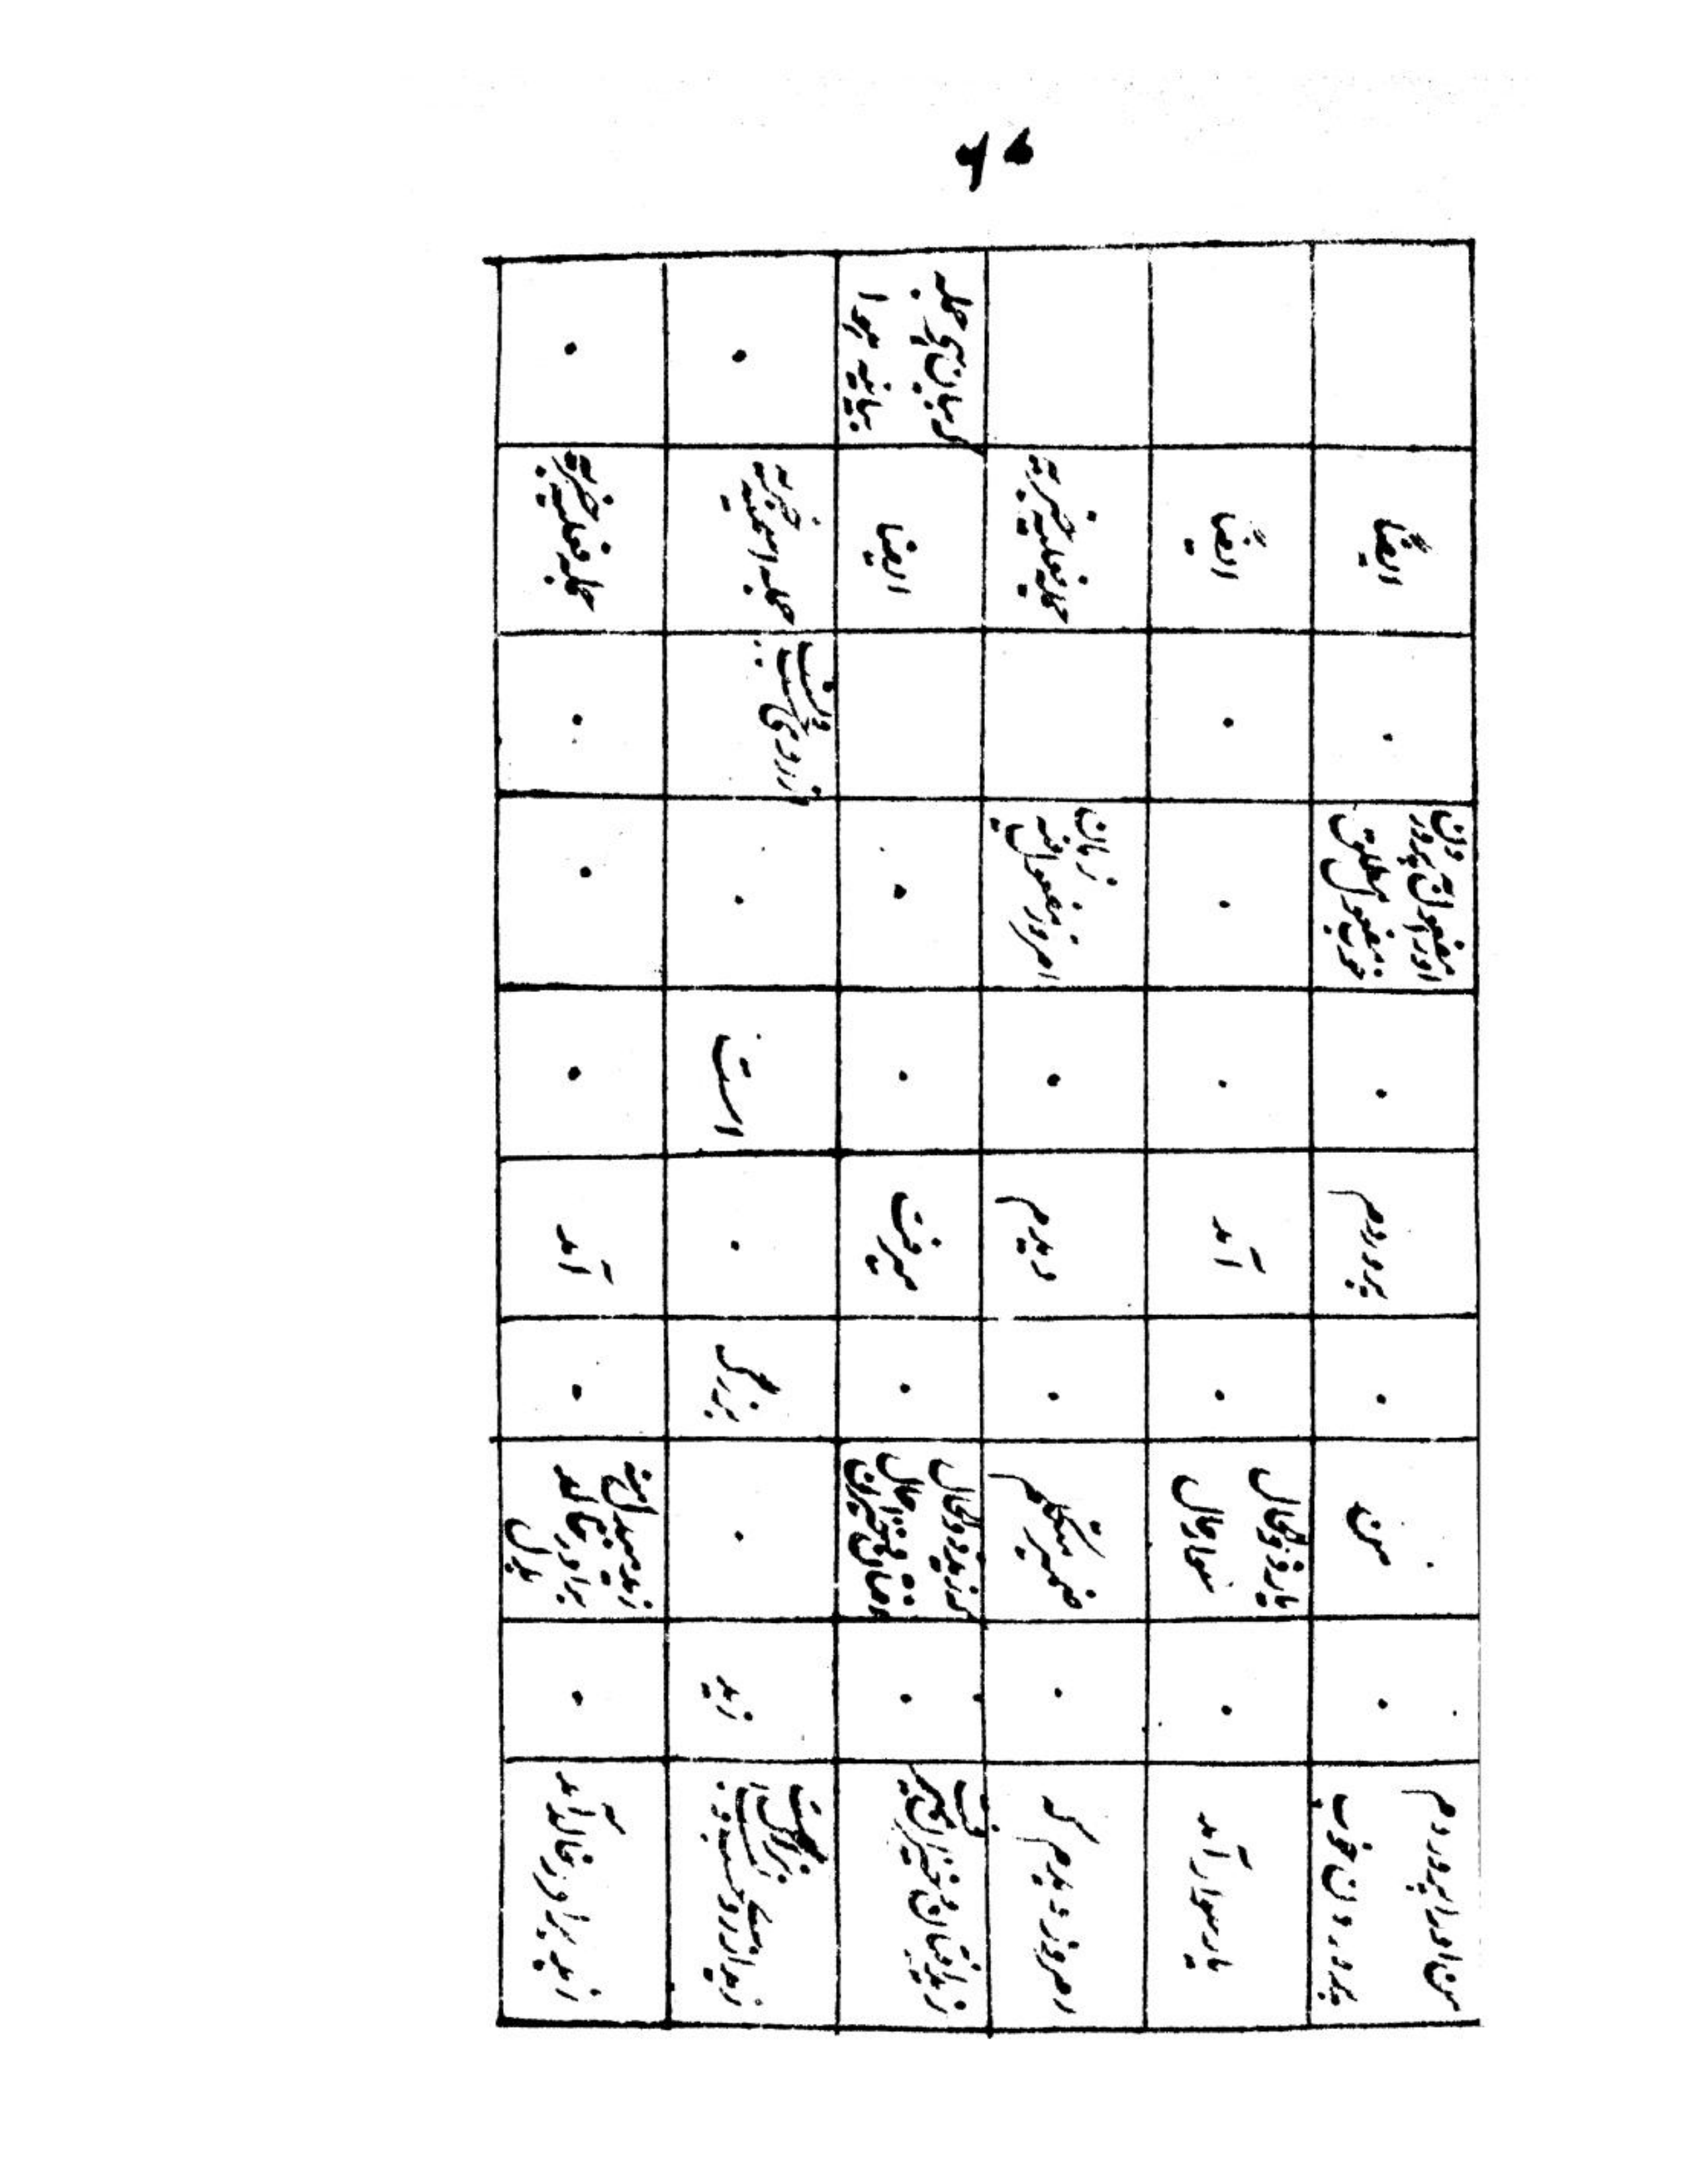 من اورا پروردم
پروردن خوب
من
پروردم
اورا مفعول به پرور
دن
خوب مفعول مطلق
ایضاً
یار سوار آمد
یار ذوالحال
سوار حال
آمد
ایضاً
امروز دیدم که
ضمیر متکلم
دیدم
امروز مفعول فیه
زمان
جمله فعلیه خبریه
زید افتان و خیزان میر
فت
که زید ذوالحال
افتان و خیزان
حال
میرفت
ایضاً
که بیان کا جمله
بیانیه هوا
زید از روی نسب
بزرگ است
زید
بزرگ
است
از روی نسب
جمله اسمیه خبریه
زید برادر خالد آمد
زید مبدل منه
برادر خالد
بدل
آمد
جمله فعلیه خبریه